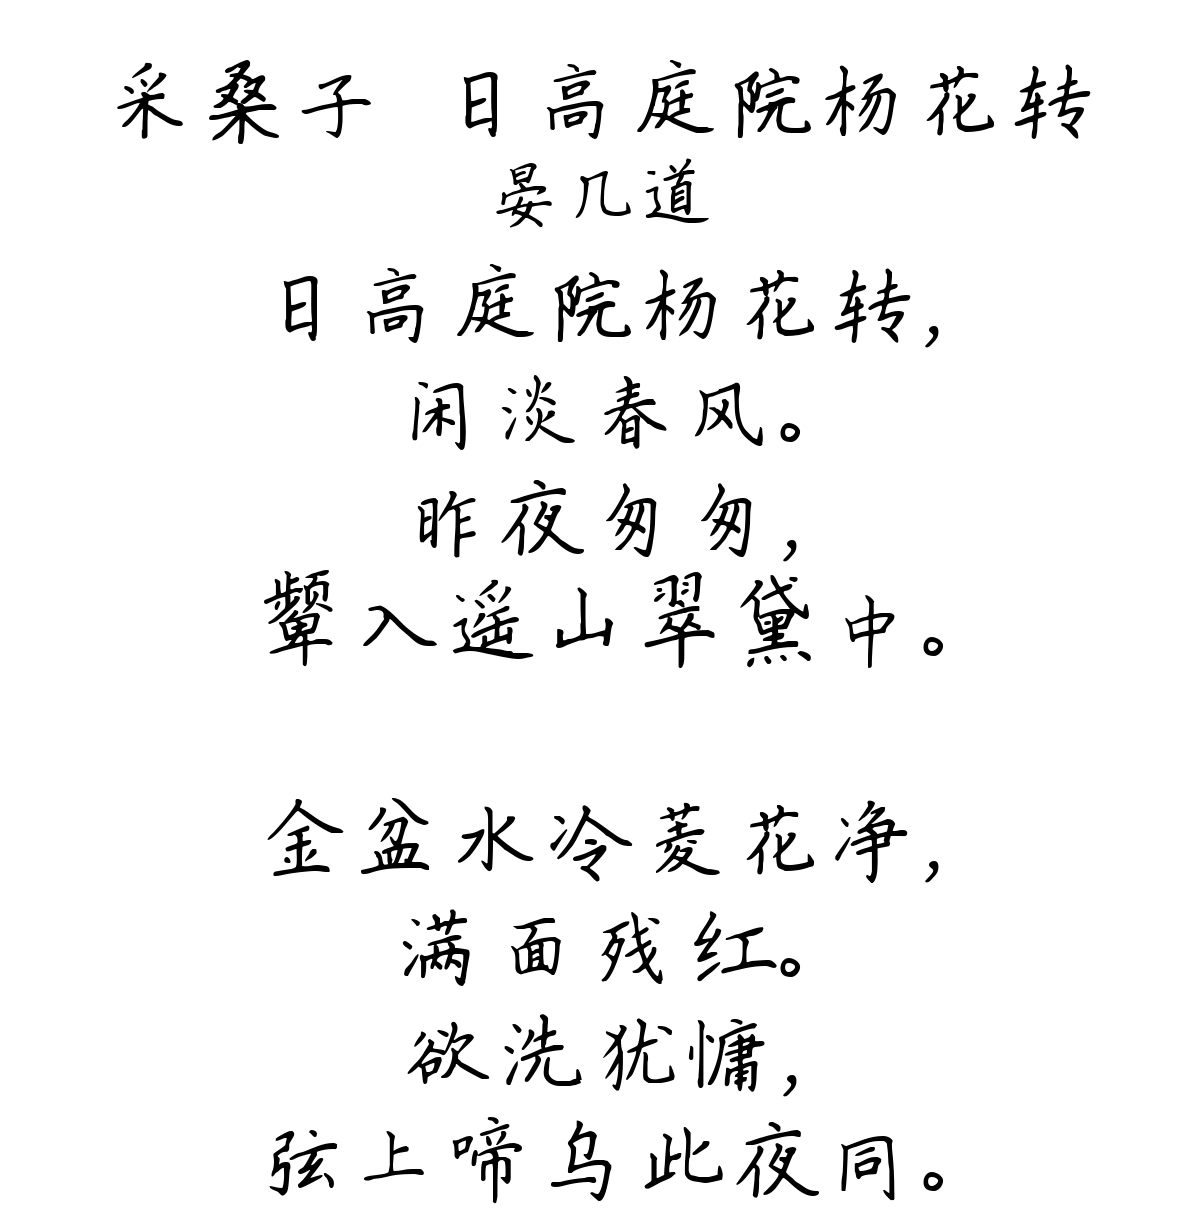 采桑子 日高庭院杨花转
晏几道
日高庭院杨花转，
闲淡春风。
昨夜匆匆，
颦入遥山翠黛中。
金盆水冷菱花净，
满面残红。
欲洗犹慵，
弦上啼乌此夜同。